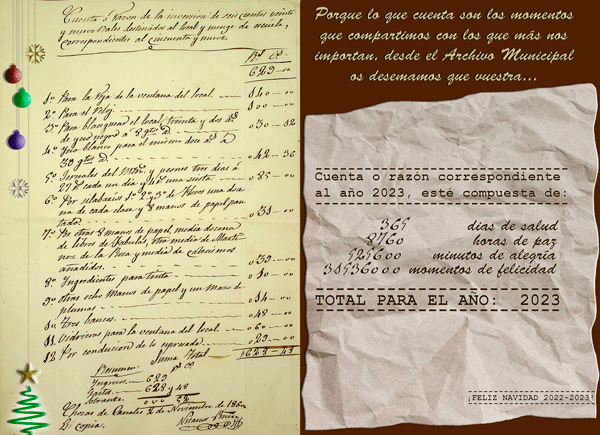 Cuenta ó razon de la inversion de seis cientos veinte
y nueve Reales destinados al local y menage de escuela,
correspondientes al cincuenta y nueve.
629-00
1º Para la Reja de la ventana del local 140-00
2º Para el Reloj 100-00
3º Para blanquear el local, treinta y dos
de yeso negro á 8
4º Yeso blanco para el mismo dos á
30
5º Jornales del Mtro y peones tres dias á
6º Por silabarios 1º 2º y 3º de Flores una docena
de cada clase y 8 manos de papel pautado
7º Por otras 8 manos de papel, media docena
de libros de Fabulas, otra media de Martinez
de la Rosa y media de catecismos
añadidos
8º Ingredientes para tinta 10-00
9º otras ocho manos de papel y un mazo de
plumas 14-00
10. Tres bancos 48-00
11 Vidrieras para la ventana del local 60-00
12 Por conducion de lo expresado 29-00
Suma Total 1628-48
Resumen
Ingresos 629
Gastos 628 y 48
Sobrante 000 52
Casas de Canales 2 de Noviembre de 186
Es copia.
Porque lo que cuenta son los momentos
que compartimos con los que más nos
importan, desde el Archivo Municipal
os desemamos que vuestra...
Cuenta o razón correspondiente
al año 2023, esté compuesta de:
365 dias de salud
8760 horas de paz
525600 minutos de alegria
31536000 momentos de felicidad
TOTAL PARA EL AÑO: 2023
¡FELIZ NAVIDAD 2022-2023!